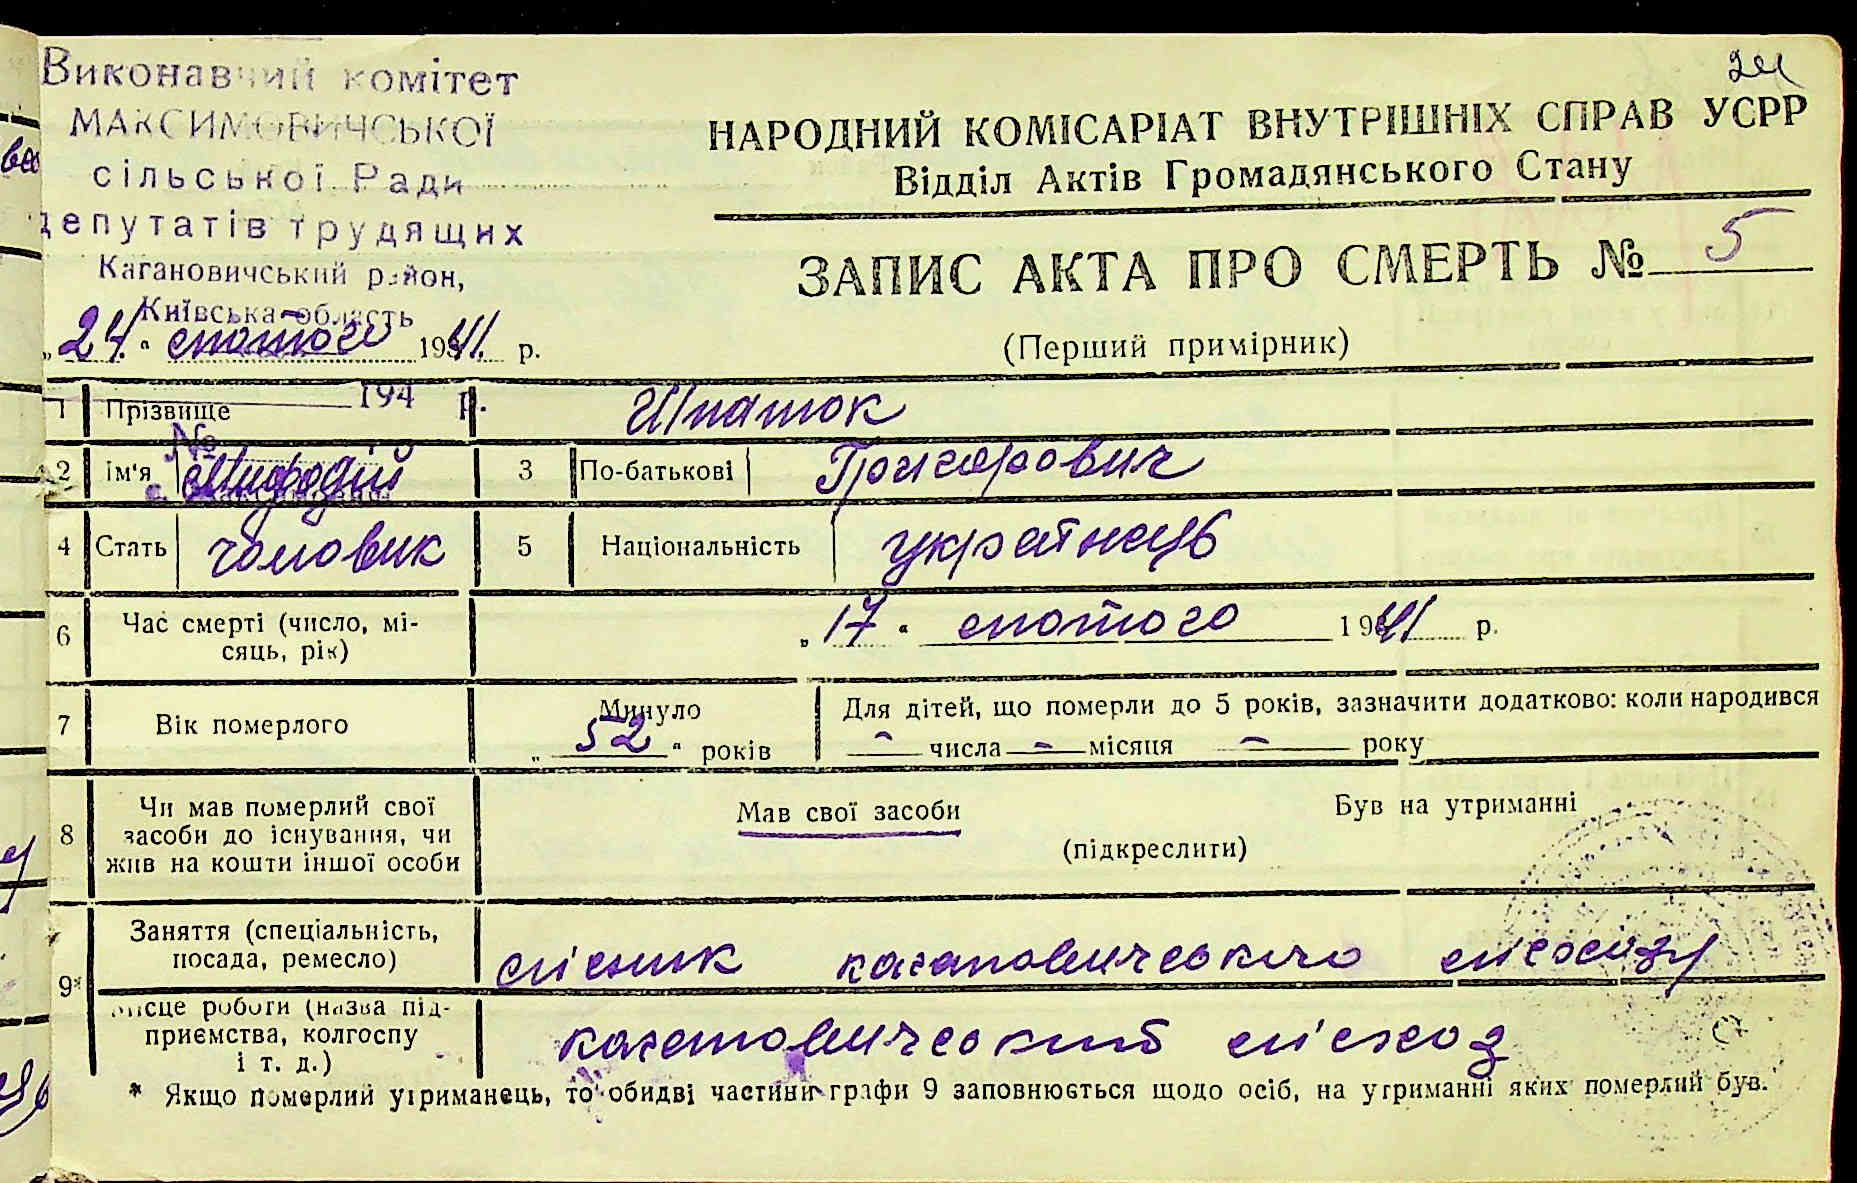 24
Виконавчий комітет
МАКСИМОВИЧСЬКОЇ
сільської Ради
депутатів трудящих
Кагановичський район,
Київська область
НАРОДНИЙ КОМІСАРІАТ ВНУТРІШНІХ СПРАВ УСРР
Відділ Актів Громадянського Стану
ЗАПИС АКТА ПРО СМЕРТЬ № 5
(Перший примірник)
„24“ лютого 1941 р.
194 р.
№
1 Прізвище Ігнатюк
2 Ім'я Мифодій 3 По-батькові Григорович
4 Стать чоловик 5 Національність українець
6 Час смерті (число, мі-
сяць, рік) „17“ лютого 1941 р.
7 Вік померлого Минуло „52“ років
Для дітей, що померли до 5 років, зазначити додатково: коли народився
- числа - місяця - року
8 Чи мав померлий свої
засоби до існування, чи
жив на кошти іншої особи
Мав свої засоби Був на утриманні
(підкреслити)
9* Заняття (спеціальність,
посада, ремесло) лісник кагановического
Місце роботи (назва під-
приємства, колгоспу
і т. д.) кагановический лісхоз
* Якщо померлий утриманець, то обидві частини графи 9 заповнюється щодо осіб, на утриманні яких померлий був.